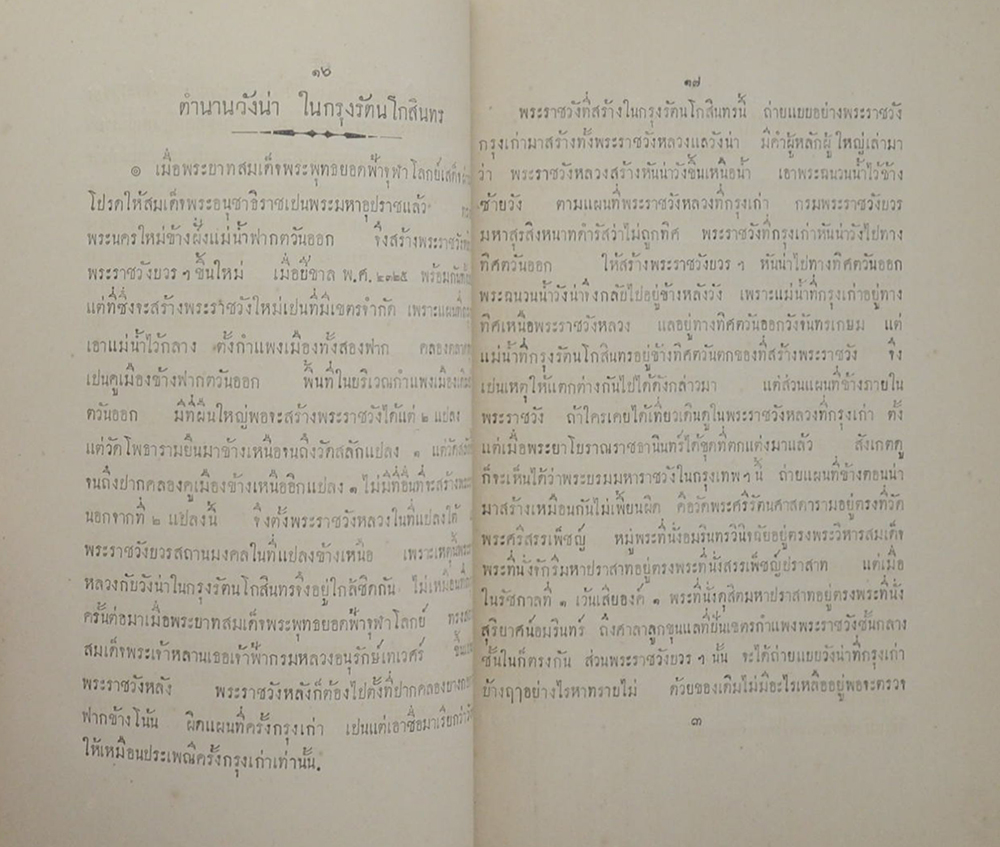 ๑๖
ตำนานวังน่า ในกรุงรัตนโกสินทร
๑ เมื่อพระบาทสมเด็จพระพุทธยอดฟ้าจุฬาโลกย์เสด็จ
โปรดให้สมเด็จพระอนุชาธิราชเปนพระมหาอุปราชแล้ว
พระนครใหม่ข้างฝั่งแม่น้ำฟากตวันออก จึงสร้างพระราชวัง
พระราชวังบวร ๆ ขึ้นใหม่ เมื่อปีขาล พ.ศ. ๒๓๒๕ พร้อมกัน
แต่ที่ซึ่งจะสร้างพระราชวังใหม่เปนที่มีเขตรจำกัด เพราะแผนที่
เอาแม่น้ำไว้กลาง ตั้งกำแพงเมืองทั้งสองฟาก คลอง
เปนคูเมืองข้างฟากตวันออก พื้นที่ในบริเวณกำแพงเมือง
ตวันออก มีที่ผืนใหญ่พอจะสร้างพระราชวังได้แต่ ๒ แปลง
แต่วัดโพธารามขึ้นมาข้างเหนือจนถึงวัดสลักแปลง ๑ แต่วัด
จนถึงปากคลองคูเมืองข้างเหนืออิกแปลง ๑ ไม่มีที่อื่นที่จะสร้าง
นอกจากที่ ๒ แปลงนี้ จึงตั้งพระราชวังหลวงในที่แปลงใต้
พระราชวังบวรสถานมงคลในที่แปลงข้างเหนือ เพราะเหตุนั้น
หลวงกับวังน่าในกรุงรัตนโกสินทรจึงอยู่ใกล้ชิดกัน ไม่เหมือน
ครั้นต่อมาเมื่อพระบาทสมเด็จพระพุทธยอดฟ้าจุฬาโลกย์ ทรง
สมเด็จพระเจ้าหลานเธอเจ้าฟ้ากรมหลวงอนุรักษ์เทเวศร์
พระราชวังหลัง พระราชวังหลังก็ต้องไปตั้งที่ปากคลองบาง
ฟากข้างโน้น ผิดแผนที่ครั้งกรุงเก่า เปนแต่เอาชื่อมาเรียกว่า
ให้เหมือนประเพณีครั้งกรุงเก่าเท่านั้น.
๑๗
พระราชวังที่สร้างในกรุงรัตนโกสินทรนี้ ถ่ายแบบอย่างพระราชวัง
กรุงเก่ามาสร้างทั้งพระราชวังหลวงแลวังน่า มีคำผู้หลักผู้ใหญ่เล่ามา
ว่า พระราชวังหลวงสร้างหันน่าวังขึ้นเหนือน้ำ เอาพระฉนวนน้ำไว้ข้าง
ซ้ายวัง ตามแผนที่พระราชวังหลวงที่กรุงเก่า กรมพระราชวังบวร
มหาสุรสิงหนาทดำรัสว่าไม่ถูกทิศ พระราชวังที่กรุงเก่าหันน่าวังไปทาง
ทิศตวันออก ให้สร้างพระราชวังบวร ๆ หันน่าไปทางทิศตวันออก
พระฉนวนน้ำวังน่าจึงกลับไปอยู่ข้างหลังวัง เพราะแม่น้ำที่กรุงเก่าอยู่ทาง
ทิศเหนือพระราชวังหลวง แลอยู่ทางทิศตวันออกวังจันทรเกษม แต่
แม่น้ำที่กรุงรัตนโกสินทรอยู่ข้างทิศตวันตกของที่สร้างพระราชวัง จึง
เปนเหตุให้แตกต่างกันไปได้ดังกล่าวมา แต่ส่วนแผนที่ข้างภายใน
พระราชวัง ถ้าใครเคยได้เที่ยวเดินดูในพระราชวังหลวงที่กรุงเก่า ตั้ง
แต่เมื่อพระยาโบราณราชธานินทร์ได้ขุดที่ตกแต่งมาแล้ว สังเกตดู
ก็จะเห็นได้ว่าพระบรมมหาราชวังในกรุงเทพ ๆ นี้ ถ่ายแผนที่ข้างตอนน่า
มาสร้างเหมือนกันไม่เพี้ยนผิด คือวัดพระศรีรัตนศาสดารามอยู่ตรงที่วัด
พระศรีสรรเพ็ชญ์ หมู่พระที่นั่งอมรินทรวินิจฉัยอยู่ตรงพระวิหารสมเด็จ
พระที่นั่งจักรีมหาปราสาทอยู่ตรงพระที่นั่งสรรเพ็ชญ์ปราสาท แต่เมื่อ
ในรัชกาลที่ ๑ เว้นเสียองค์ ๑ พระที่นั่งดุสิตมหาปราสาทอยู่ตรงพระที่นั่ง
สุริยาศน์อมรินทร์ ถึงศาลาลูกขุนแลที่ปันเขตรกำแพงพระราชวังชั้นกลาง
ชั้นในก็ตรงกัน ส่วนพระราชวังบวร ๆ นั้น จะได้ถ่ายแบบวังน่าที่กรุงเก่า
บ้างฤๅอย่างไรหาทราบไม่ ด้วยของเดิมไม่มีอะไรเหลืออยู่พอจะตรวจ
๓